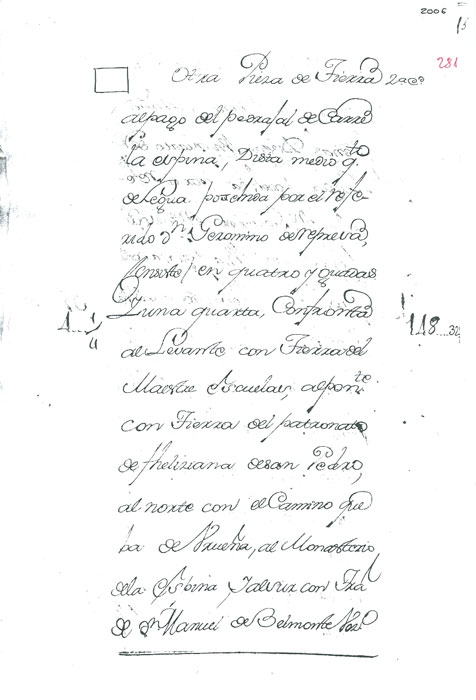 2006
15
281
Otra Pieza de Tierra
al pago del pedrosal de Carre
la espina, Dista medio q.to
de legua posehida por el refe-
rido Dn Geronimo de
en quatro y
Y una quarta, Confronta
1
118...32
al Levante con Tierra del
Maestre Escuelas, al pon.te
con Tierra del patronato
de fheliziana de San Pedro,
al norte con el Camino que
ba de Urueña, al Monasterio
de la Esbina Y al sur con Tra
de Dn Manuel de Belmonte